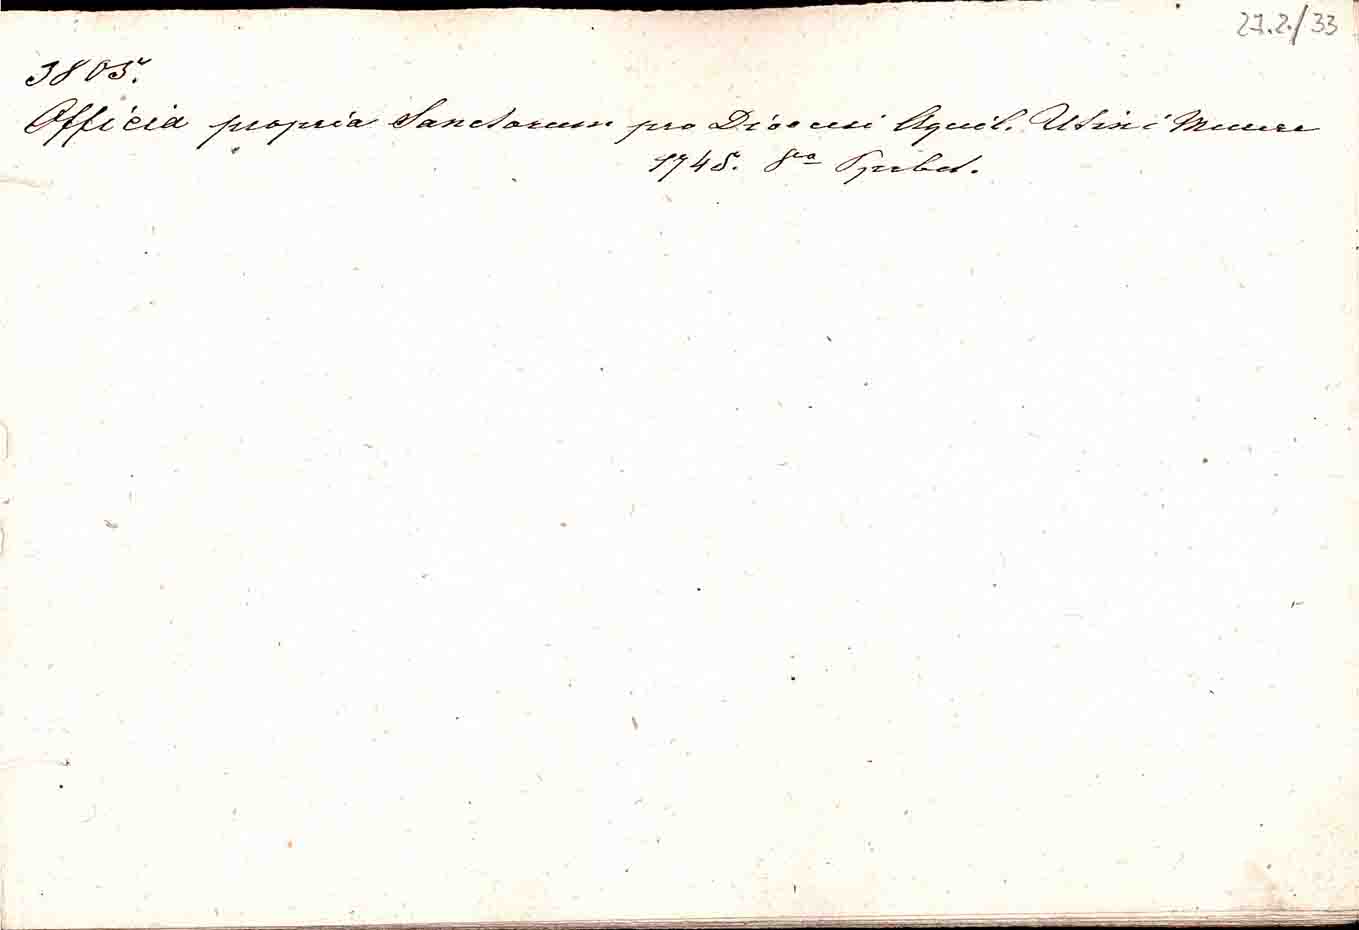 27.2./33
3805.
Officia propria Sanctorum pro Dioecesi Aquil. Utini Murere
1745. 8va